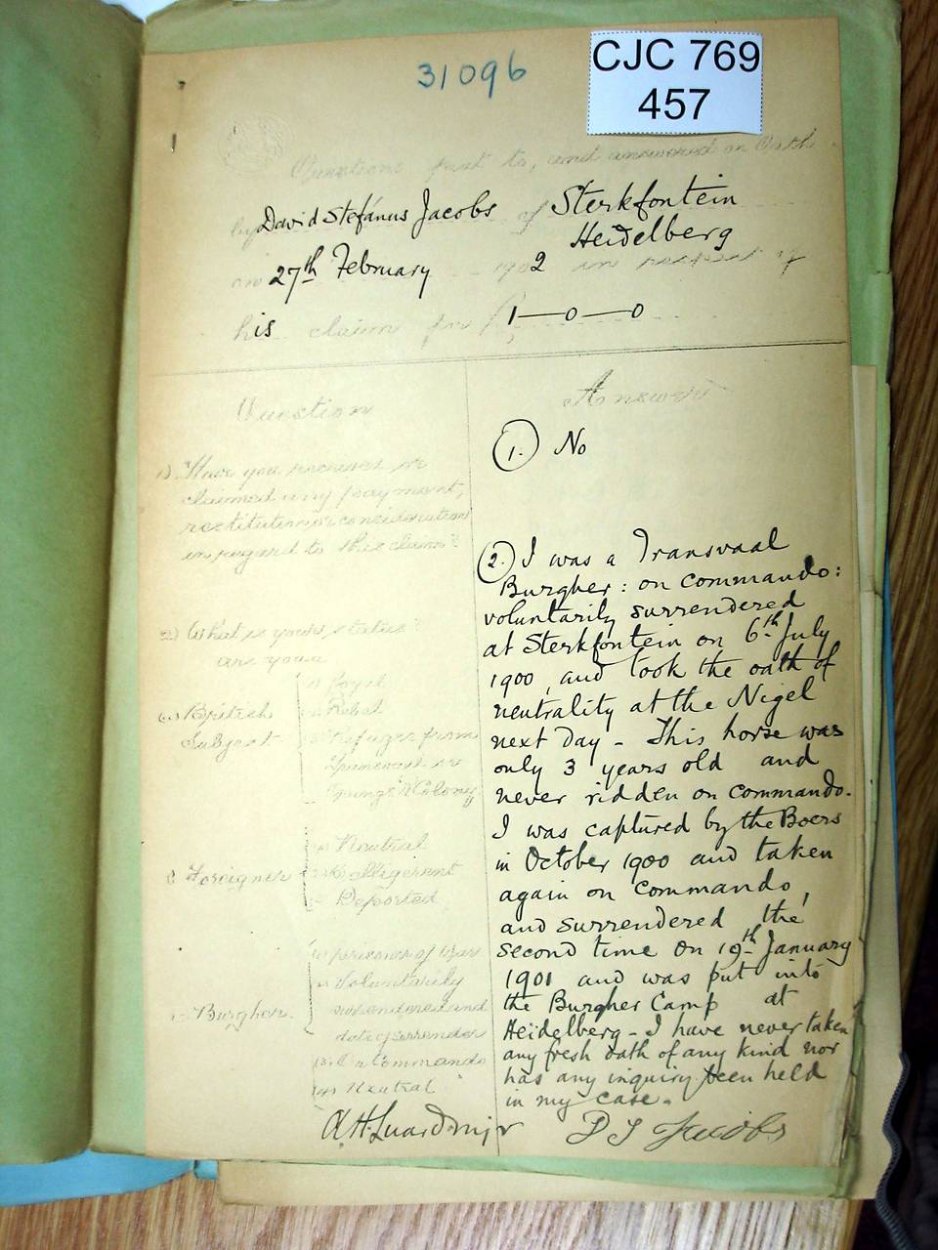 31096
CJC 769
457
Questions put to, and answered on Oath
by David Stefánus Jacobs of Sterkfontein
Heidelberg
on 27th February 1902 in respect of
his claim for £ 1—0—0
Question
Answer
1) Have you received or
claimed any payment,
restitution or consideration
in regard to this claim?
1. No
2) What is your status?
are you a
British
Subject
Loyal
Rebel
Refugee from
Transvaal or
Orange R. Colony
Foreigner
Neutral
Belligerent
Deported
Burgher
prisoner of War
Voluntarily
surrendered and
date of surrender
On Commando
Neutral
2. I was a Transvaal
Burgher: on commando:
voluntarily surrendered
at Sterkfontein on 6th July
1900, and took the oath of
neutrality at the Nigel
next day - This horse was
only 3 years old and
never ridden on commando.
I was captured by the Boers
in October 1900 and taken
again on commando,
and surrendered the
second time on 19th January
1901 and was put into
the Burgher Camp at
Heidelberg - I have never taken
any fresh oath of any kind nor
has any inquiry been held
in my case.
A.H. Luard Major
D S Jacobs